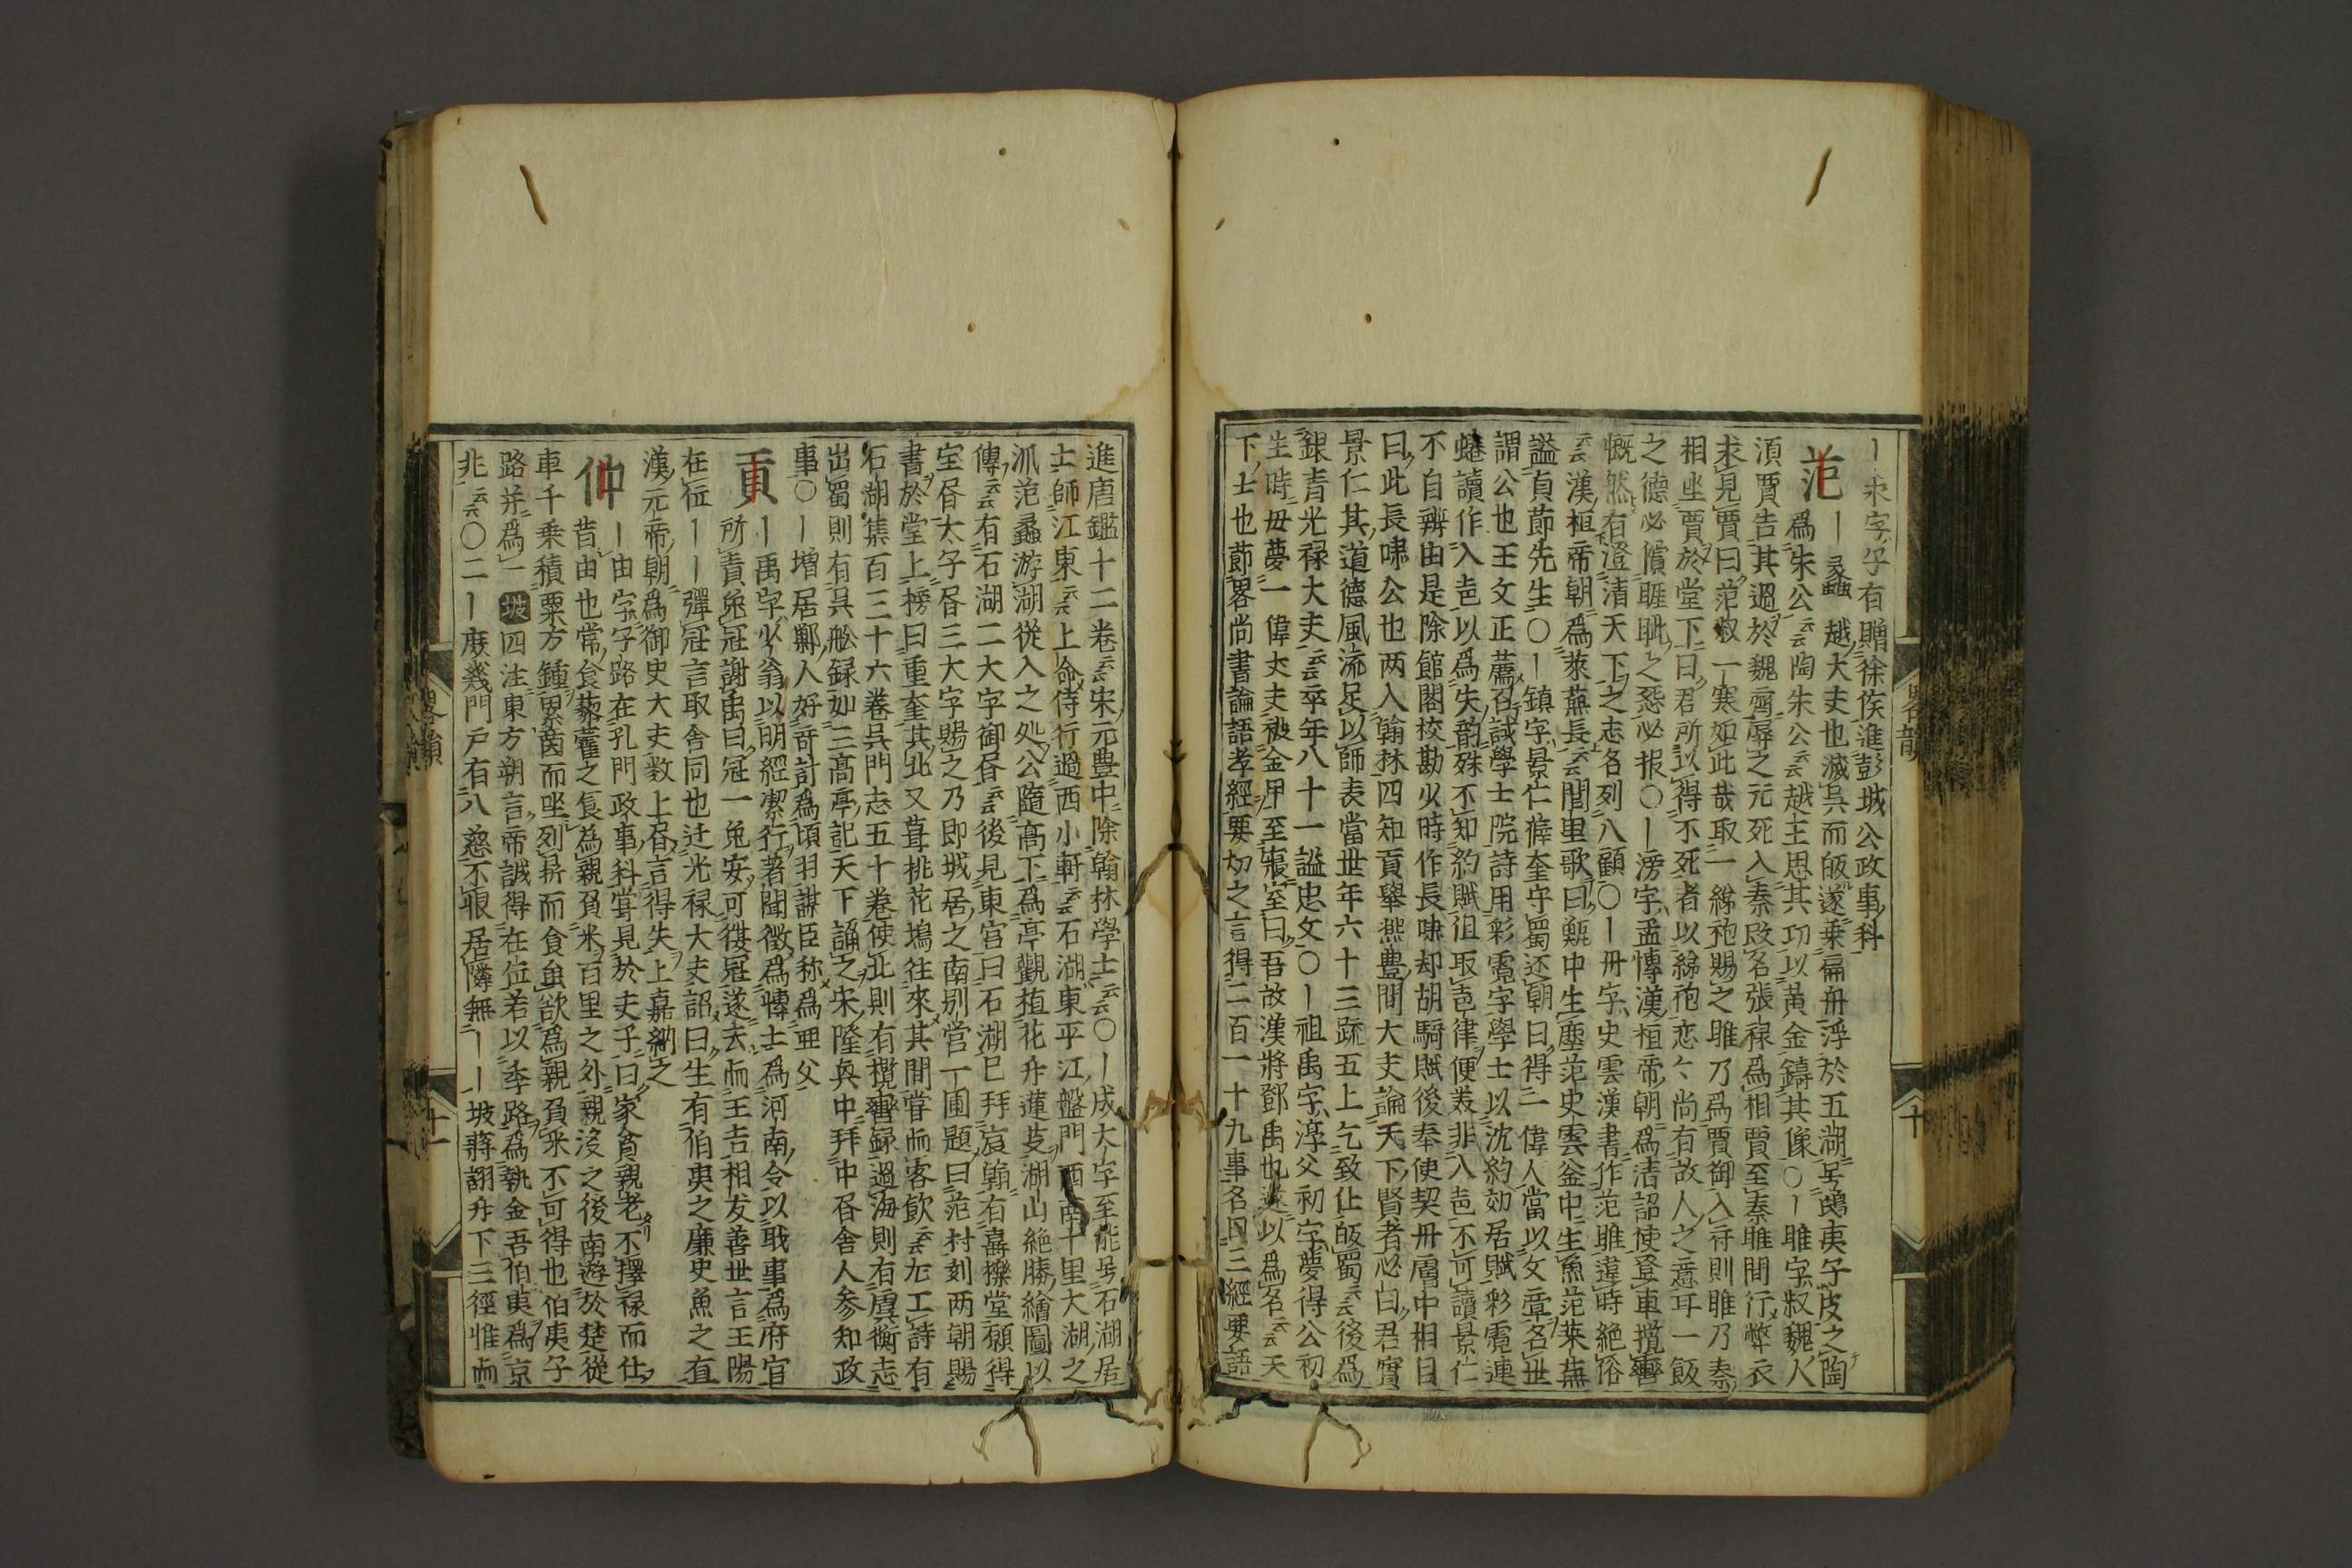 丨末字子有贈徐侯進彭城公政事科
范丨蠡越大夫也滅吳而皈遂乗扁舟浮於五湖号鴟夷子皮之陶
為朱公云云陶朱公云云越王思其功以黄金鑄其像○丨雎字叔魏人
須賈告其過於魏齊辱之元死入秦改名張禄爲相賈至秦雎間行弊衣
求見賈曰范叔一寒如此哉取一綈袍賜之雎乃爲賈御入府則雎乃秦
相坐賈於堂下曰君所以得不死者以綈袍恋々尚有故人之意耳一飯
之德必償睚眦之怨必报○丨滂字孟博漢桓帝朝爲清詔使登車攬轡
慨然有澄清天下之志名列八顧○丨冉字史雲漢書作范雎違時絶俗
云云漢桓帝朝爲萊蕪長云云閭里歌曰甑中生塵范史雲釜中生魚范萊蕪
謚貞莭先生○丨鎮字景仁倅奎守蜀还朝曰得一偉人當以文章名世
謂公也王文正薦召試學士院詩用彩霓字學士以沈約効居賦彩霓連
蜷讀作入声以爲失韵殊不知約賦徂取声律便美非入声不可讀景仁
不自辨由是除館閣校勘少時作長嘯却胡騎賦後奉使契丹虜中相目
曰此長嘯公也两入翰林四知貢舉熈豊間大夫論天下賢者必曰君實
景仁其道德風流足以師表當世年六十三疏五上乞致仕皈蜀云云後爲
銀青光禄大夫云云卒年八十一謚忠文○丨祖禹字淳父初字夢得公初
生時毋夢一偉丈夫被金甲至寢室曰吾故漢將鄧禹也遂以爲名云云天
下士也莭畧尚書論語孝經要切之言得二百一十九事名曰三經要語
畧韻
十
進唐鑑十二卷云云宋元豊中除翰林學士云云○丨成大字至能号石湖居
士師江東云云上命侍行過西小軒云云石湖東平江盤門西南十里大湖之
派范蠡游湖從入之処公隨高下爲亭觀植花舟蓮芰湖山絶勝繪圖以
傳云云有石湖二大字御昏云云後見東宫曰石湖巳拜宸翰有壽櫟堂願得
宝昏太子昏三大字賜之乃即城居之南别营一圃題曰范村刻两朝賜
書於堂上榜曰重奎其北又葺桃花塢往來其間甞而客飲云云左工詩有
石湖集百三十六卷吳門志五十卷使北則有攬轡録過海則有虞衡志
出蜀則有吳舩録如三高亭記天下誦之宋隆興中拜中昏舍人参知政
事○丨增居鄛人好竒計爲項羽謀臣称爲亜父
貢丨禹字少翁以明經潔行著聞徴爲博士爲河南令以戢事為府官
所責免冠謝禹曰冠一免安可復冠遂去而王吉相友善世言王陽
在位丨丨彈冠言取舍同也迁光禄大夫詔曰生有伯夷之廉史魚之直
漢元帝朝爲御史大夫数上昏言得失上嘉納之
仲丨由字子路在孔門政事科甞見於夫子曰家貧親老不擇禄而仕
昔由也常食藜藿之食為親負米百里之外親没之後南遊於楚從
車千乗積粟方鍾累茵而坐列鼎而食虽欲爲親負米不可得也伯夷子
路并爲一坡四注東方朔言帝誠得在位若以季路爲執金吾伯夷爲京
兆云云○二丨庾幾門戸有八慈不恨居隣無丨丨坡蔣詡舟下三徑惟而
畧韻
十一